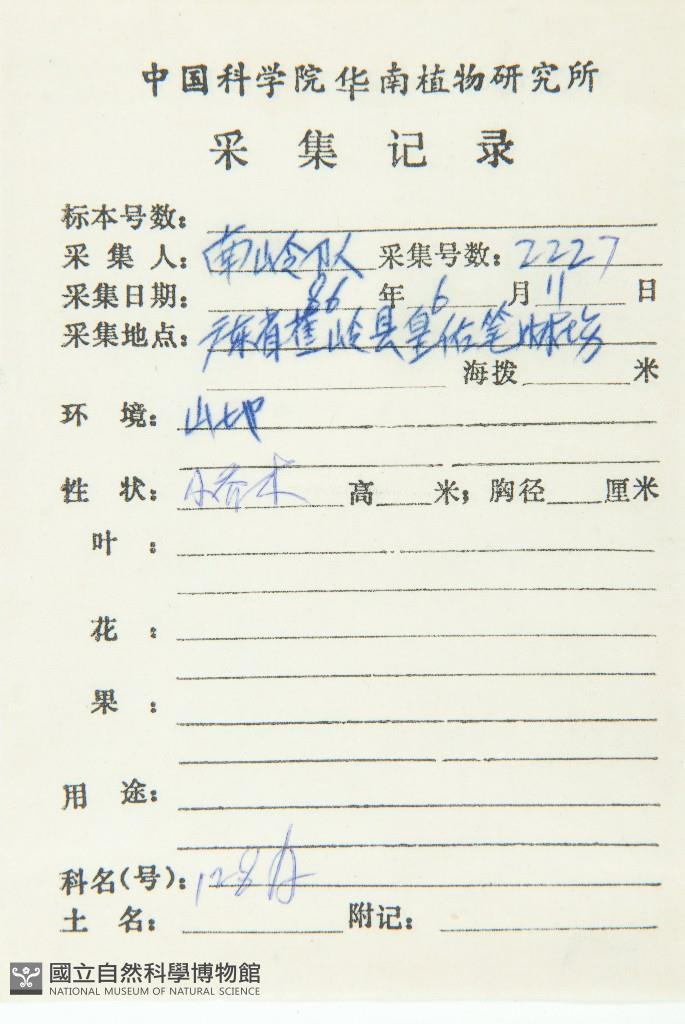 中国科学院华南植物研究所
采集记录
标本号数：
采集人：南岭队 采集号数：2227
采集日期：86年6月11日
采集地点：广东省蕉岭县皇佑笔林场
海拨 米
环境：山地
性状：小乔木 高 米；胸径 厘米
叶：
花：
果：
用途：
科名(号)：128
土名： 附记：
國立自然科學博物館
NATIONAL MUSEUM OF NATURAL SCIENCE